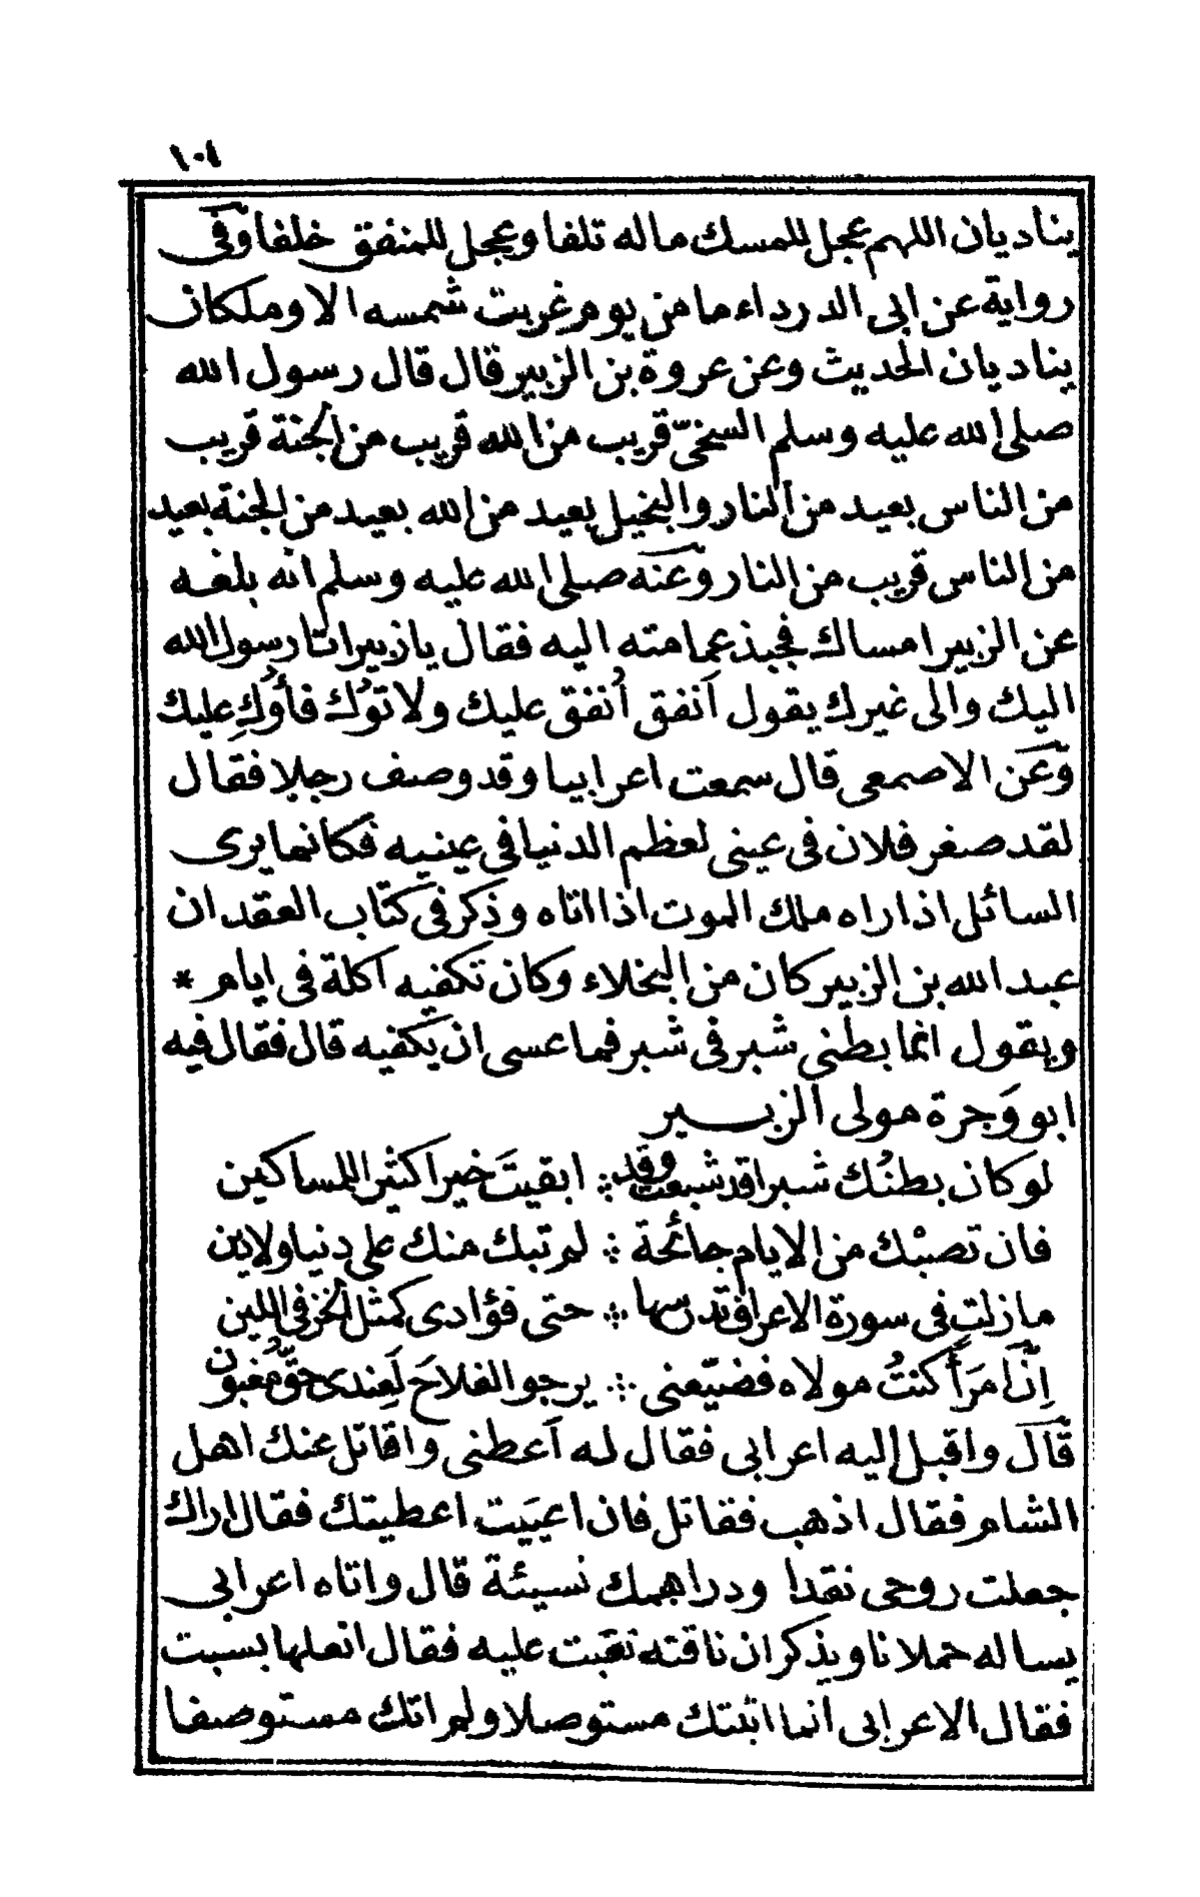 ١٠٤
يناديان اللهم عجل للمسك ماله تلفا وعجل للمنفق خلفا وفى
رواية عن ابى الدرداء ما من يوم غربت شمسه الا وملكان
يناديان الحديث وعن عروة بن الزبير قال قال رسول الله
صلى الله عليه وسلم السخىّ قريب من الله قريب من الجنة قريب
من الناس بعيد من النار والبخيل بعيد من الله بعيد من الجنة بعيد
من الناس قريب من النار وعنه صلى الله عليه وسلم انه بلغه
عن الزبير امساك فجبذ عمامته اليه فقال يا زبير انا رسول الله
اليك والى غيرك يقول اَنفق اُنفق عليك ولا توُك فأوُكِ عليك
وعن الاصمعى قال سمعت اعرابيا وقد وصف رجلا فقال
لقد صغر فلان فى عينى لعظم الدنيا فى عينيه فكانما يرى
السائل اذا راه ملك الموت اذا اتاه وذكر فى كتاب العقد ان
عبد الله بن الزبير كان من البخلاء وكان تكفيه اكلة فى ايام *
ويقول انما بطنى شبر فى شبر فما عسى ان يكفيه قال فقال فيه
ابو وَجرة مولى الزبير
لو كان بطنُك شبرا قد شبعت وقد ∴ ابقيتَ خيرا كثيرا للمساكين
فان تصبْك من الايام جائحة ∴ لم تبك منك على دنيا ولا دين
ما زلت فى سورة الاعراف تدرسها ∴ حتى فؤادى كمثل الخز فى اللين
اِنّ امرَأً كنتُ مولاه فضيّعنى ∴ يرجو الفلاحَ لَعِندى حقّ مُغبون
قال واقبل إليه اعرابى فقال له اَعطنى واقاتل عنك اهل
الشام فقال اذهب فقاتل فان اعيَيت اعطيتك فقال اراك
جعلت روحى نقدا ودراهمك نسيئة قال واتاه اعرابى
يساله حملانا ويذكر ان ناقته نقبت عليه فقال انعلها بسبت
فقال الاعرابى انما اتيتك مستوصلا ولم اتك مستوصفا